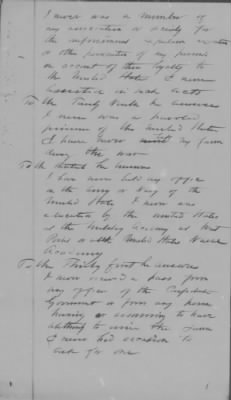 I never was a member of
any association or society for
the imprisonment expulsion
or other persecution of any person
on account of their loyalty to
the United States & never
assisted in such acts
To the he answers
I never was a paroled
prisoner of the United States
I have never my
during the war
To the he answers
I have never held any office
in the Army or Navy of the
United States I never was
educated by the United States
at the Military Academy at West
Point or at the United States Naval
Academy
To the Thirty first he answers
I never received a pass from
any officer of the Confederate
Government or from any person
having or assuming to have
authority to issue the same
& never had occasion to
ask for one